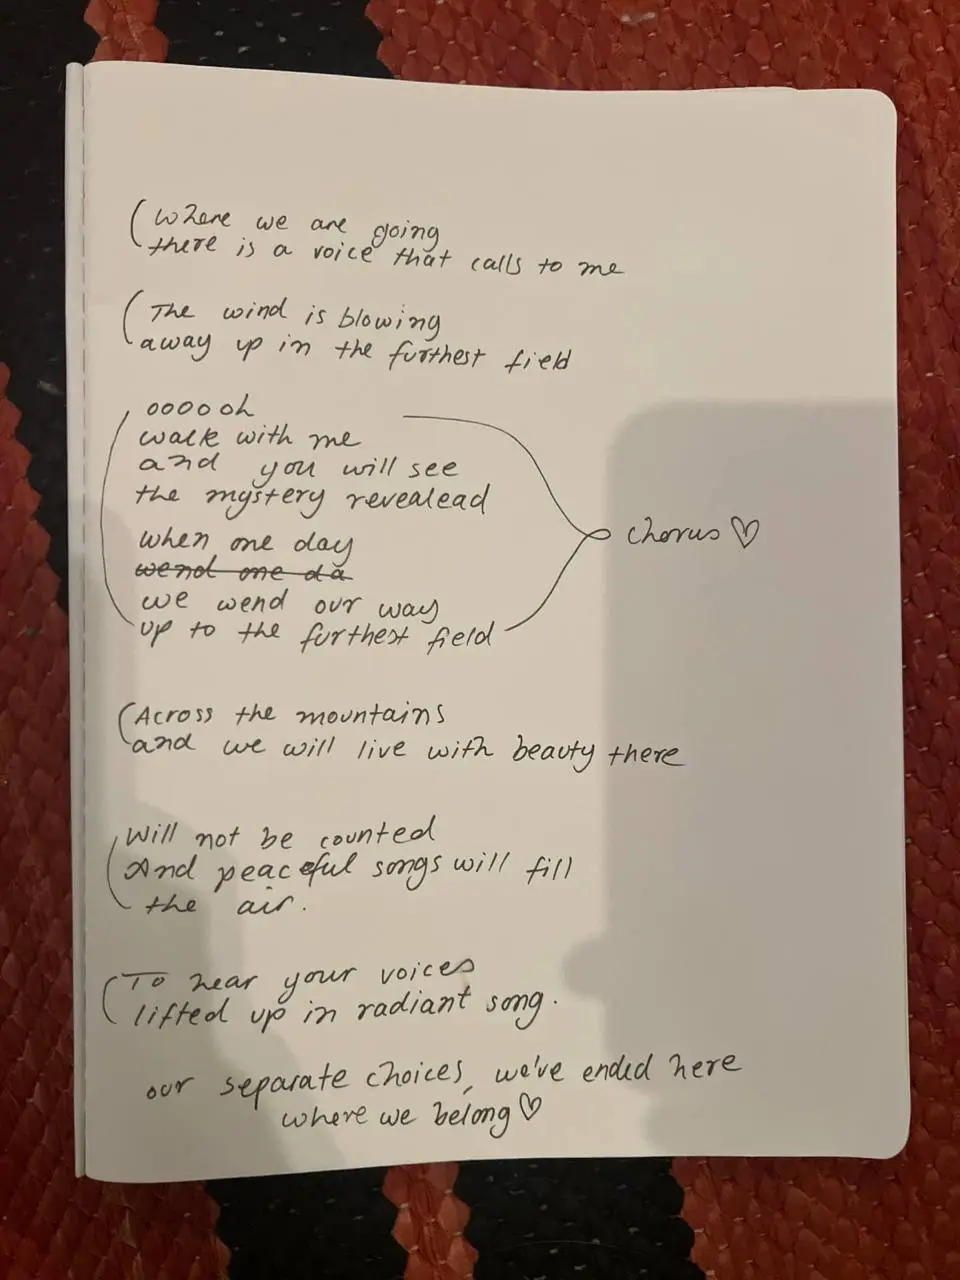 Where we are going
there is a voice that calls to me
The wind is blowing
away up in the furthest field
oooooh
walk with me
and you will see
the mystery revealead
when one day
wend one da
we wend our way
up to the furthest field
chorus ♡
Across the mountains
and we will live with beauty there
Will not be counted
And peaceful songs will fill
the air.
To hear your voices
lifted up in radiant song.
our separate choices, we've ended here
where we belong ♡